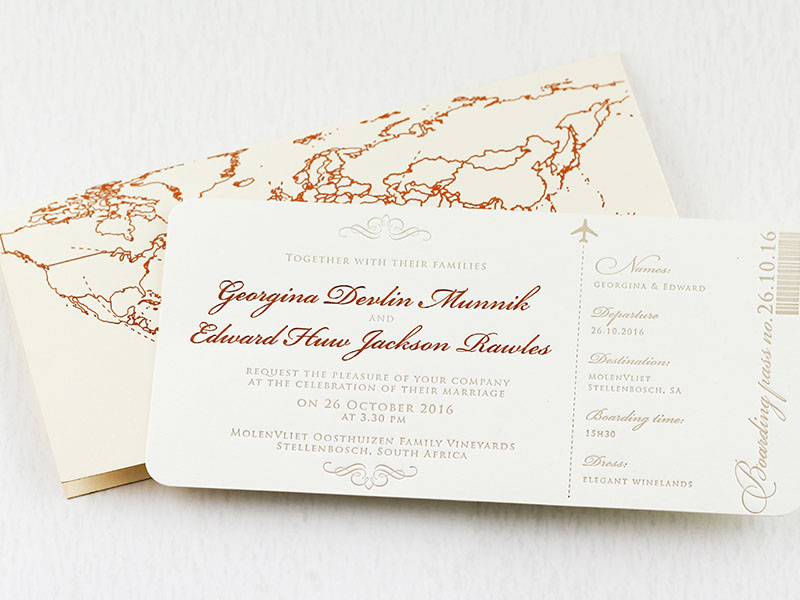 Together with their families
Georgina Devlin Munnik
and
Edward Huw Jackson Rawles
request the pleasure of your company
at the celebration of their marriage
on 26 October 2016
at 3.30 pm
MolenVliet Oosthuizen Family Vineyards
Stellenbosch, South Africa
Names:
Georgina & Edward
Departure
26.10.2016
Destination:
MolenVliet
Stellenbosch, SA
Boarding time:
15h30
Dress:
elegant winelands
Boarding pass no. 26.10.16